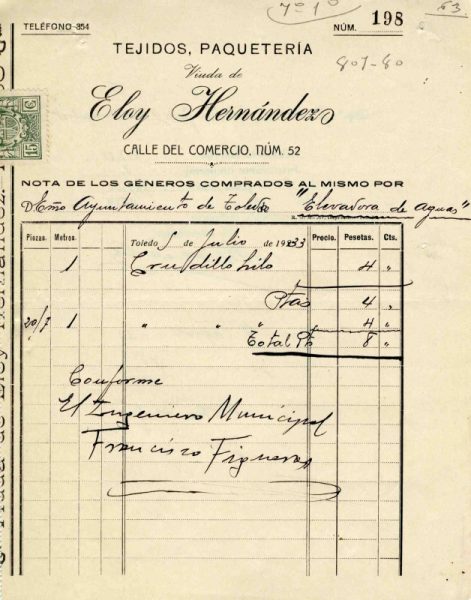 7º 1º
53
TELÉFONO 354
NÚM. 198
TEJIDOS, PAQUETERÍA
807-80
Viuda de
Eloy Hernández
CALLE DEL COMERCIO, NÚM. 52
15 C
NOTA DE LOS GÉNEROS COMPRADOS AL MISMO POR
D. Excmo Ayuntamiento de Toledo "Elevadora de Aguas"
Piezas. Metros. Toledo 5 de Julio de 1933 Precio. Pesetas. Cts.
1 Crudillo hilo 4 "
Ptas 4 "
20/7 1 " " " 4 "
Total Pts 8 "
Conforme
El Ingeniero Municipal
Francisco Figueras